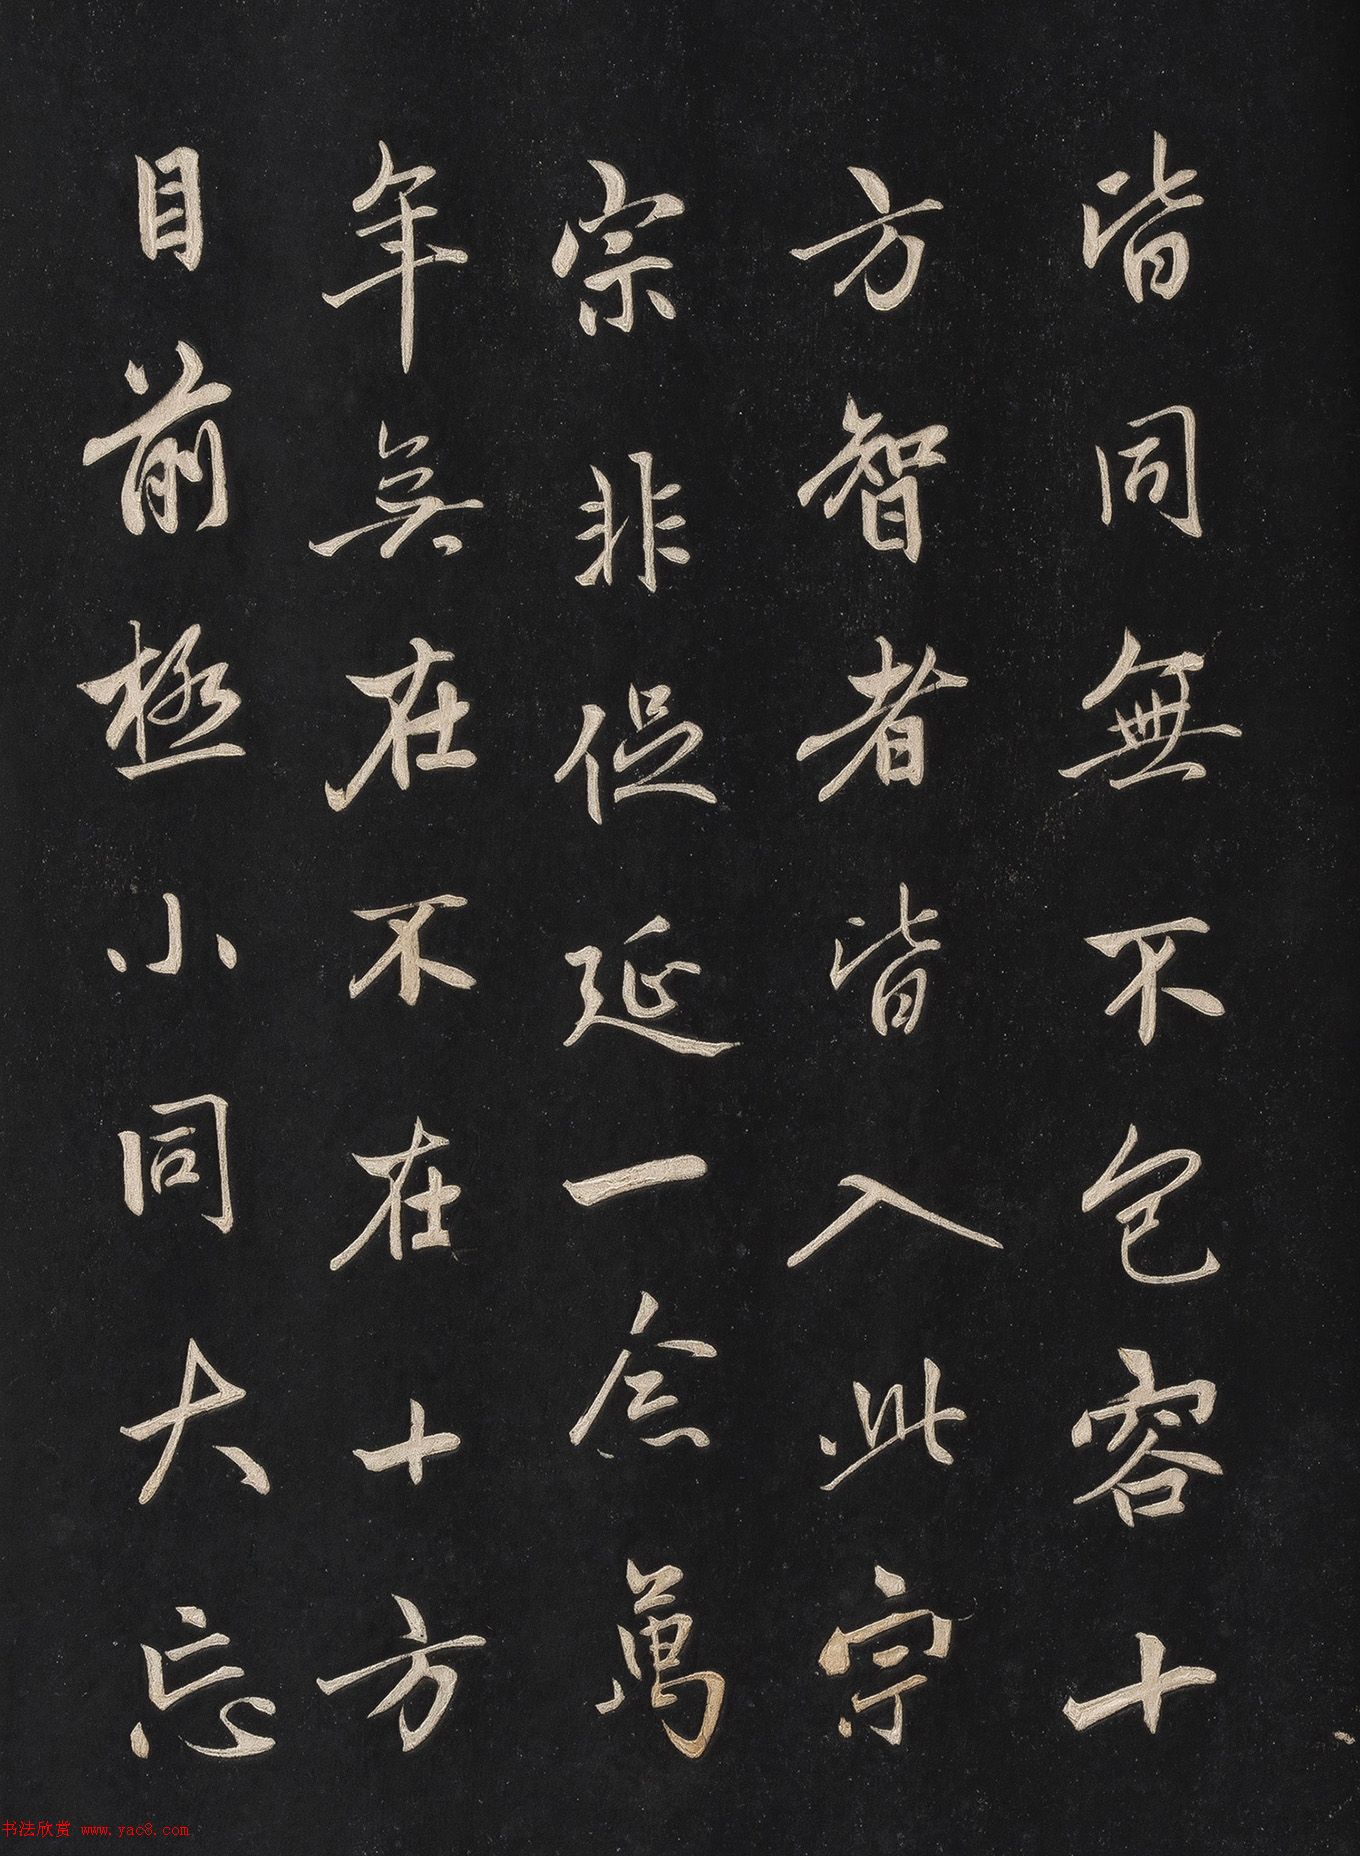 皆同無不包容十
方智者皆入此宗
宗非促延一念萬
年無在不在十方
目前極小同大忘
书法欣赏 www.yac8.com